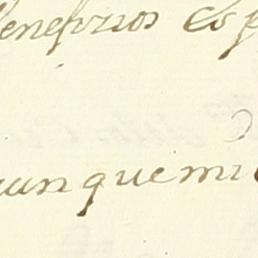 Benefizios
aunque mi